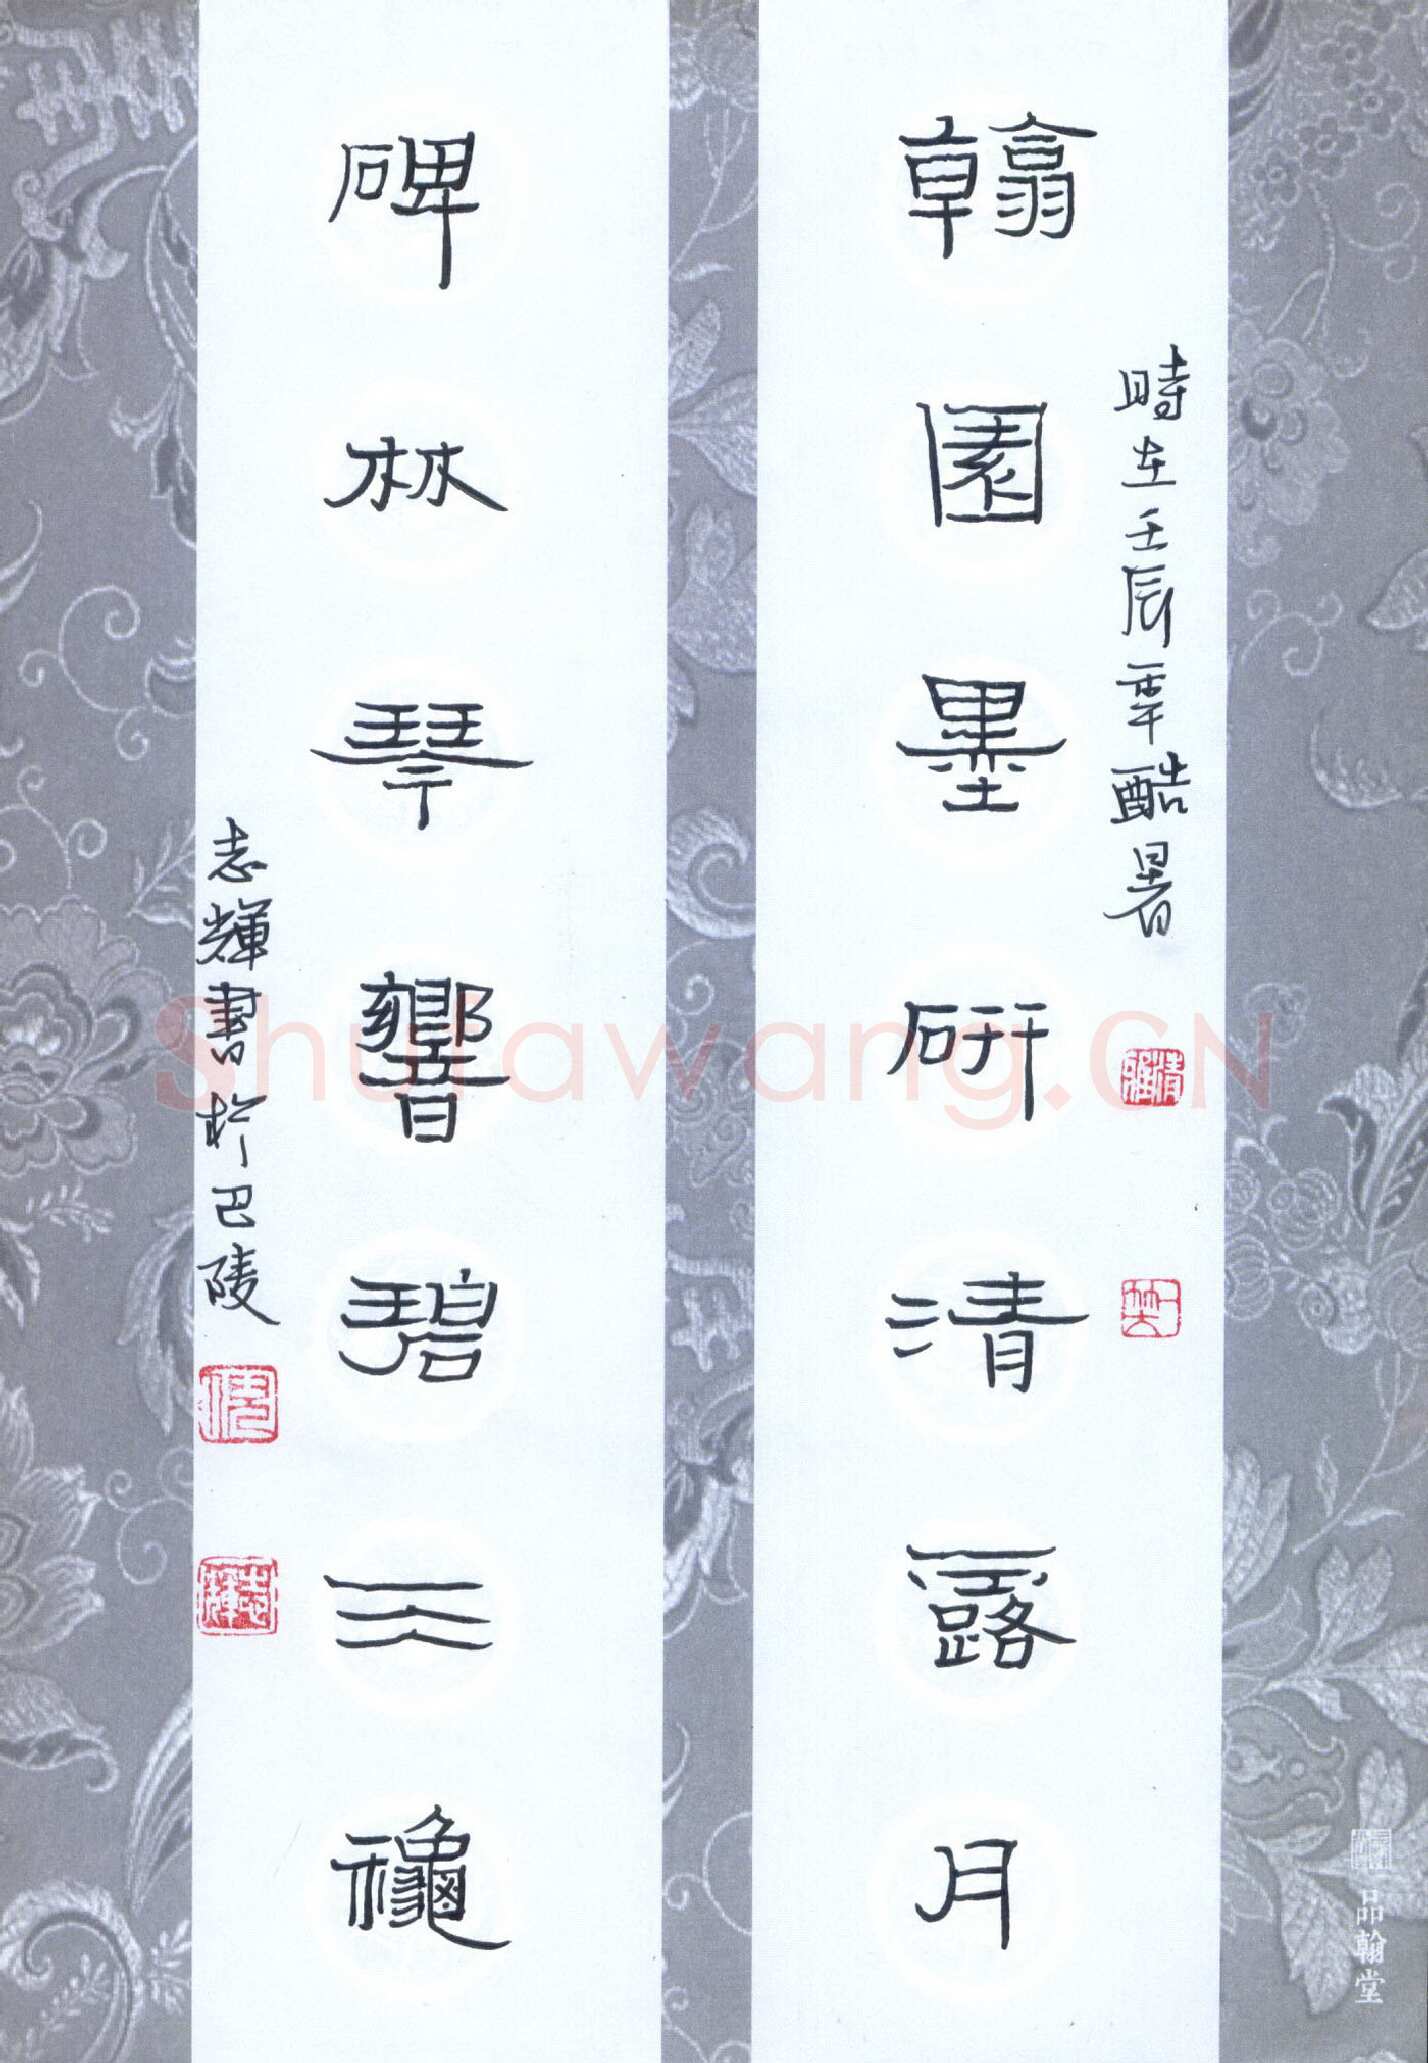 翰園墨研清露月
時在壬辰酷暑
清雅
碑林琴響碧云龝
志輝書於巴陵
志輝
品翰堂
Shufawang.CN